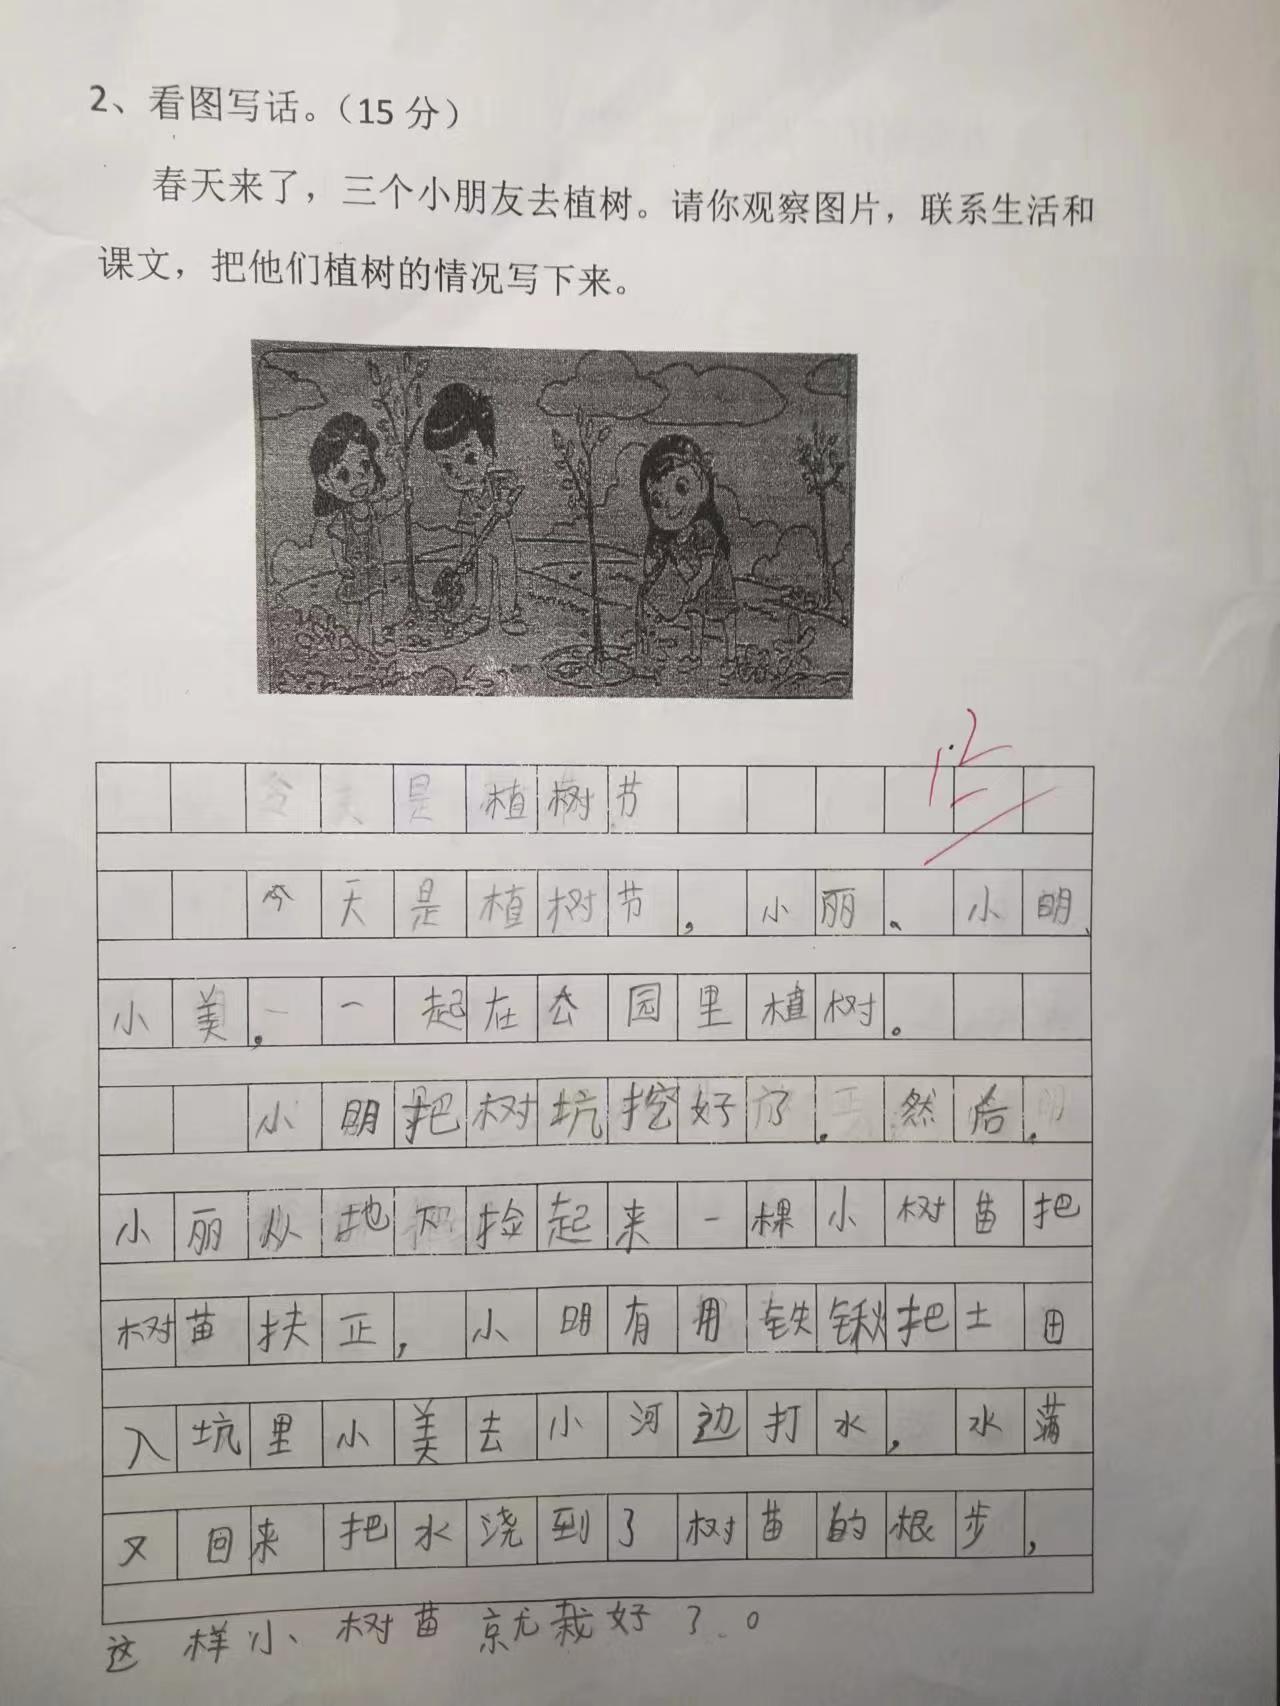 2、看图写话。（15分）
春天来了，三个小朋友去植树。请你观察图片，联系生活和
课文，把他们植树的情况写下来。
12
植树节
今天是植树节，小丽、小明、
小美，一起在公园里植树。
小明把树坑挖好了。然后，
小丽从地下捡起来一棵小树苗把
树苗扶正，小明有用铁锹把土田
入坑里小美去小河边打水，水满
又回来把水浇到了树苗的根步，
这样小树苗就栽好了。